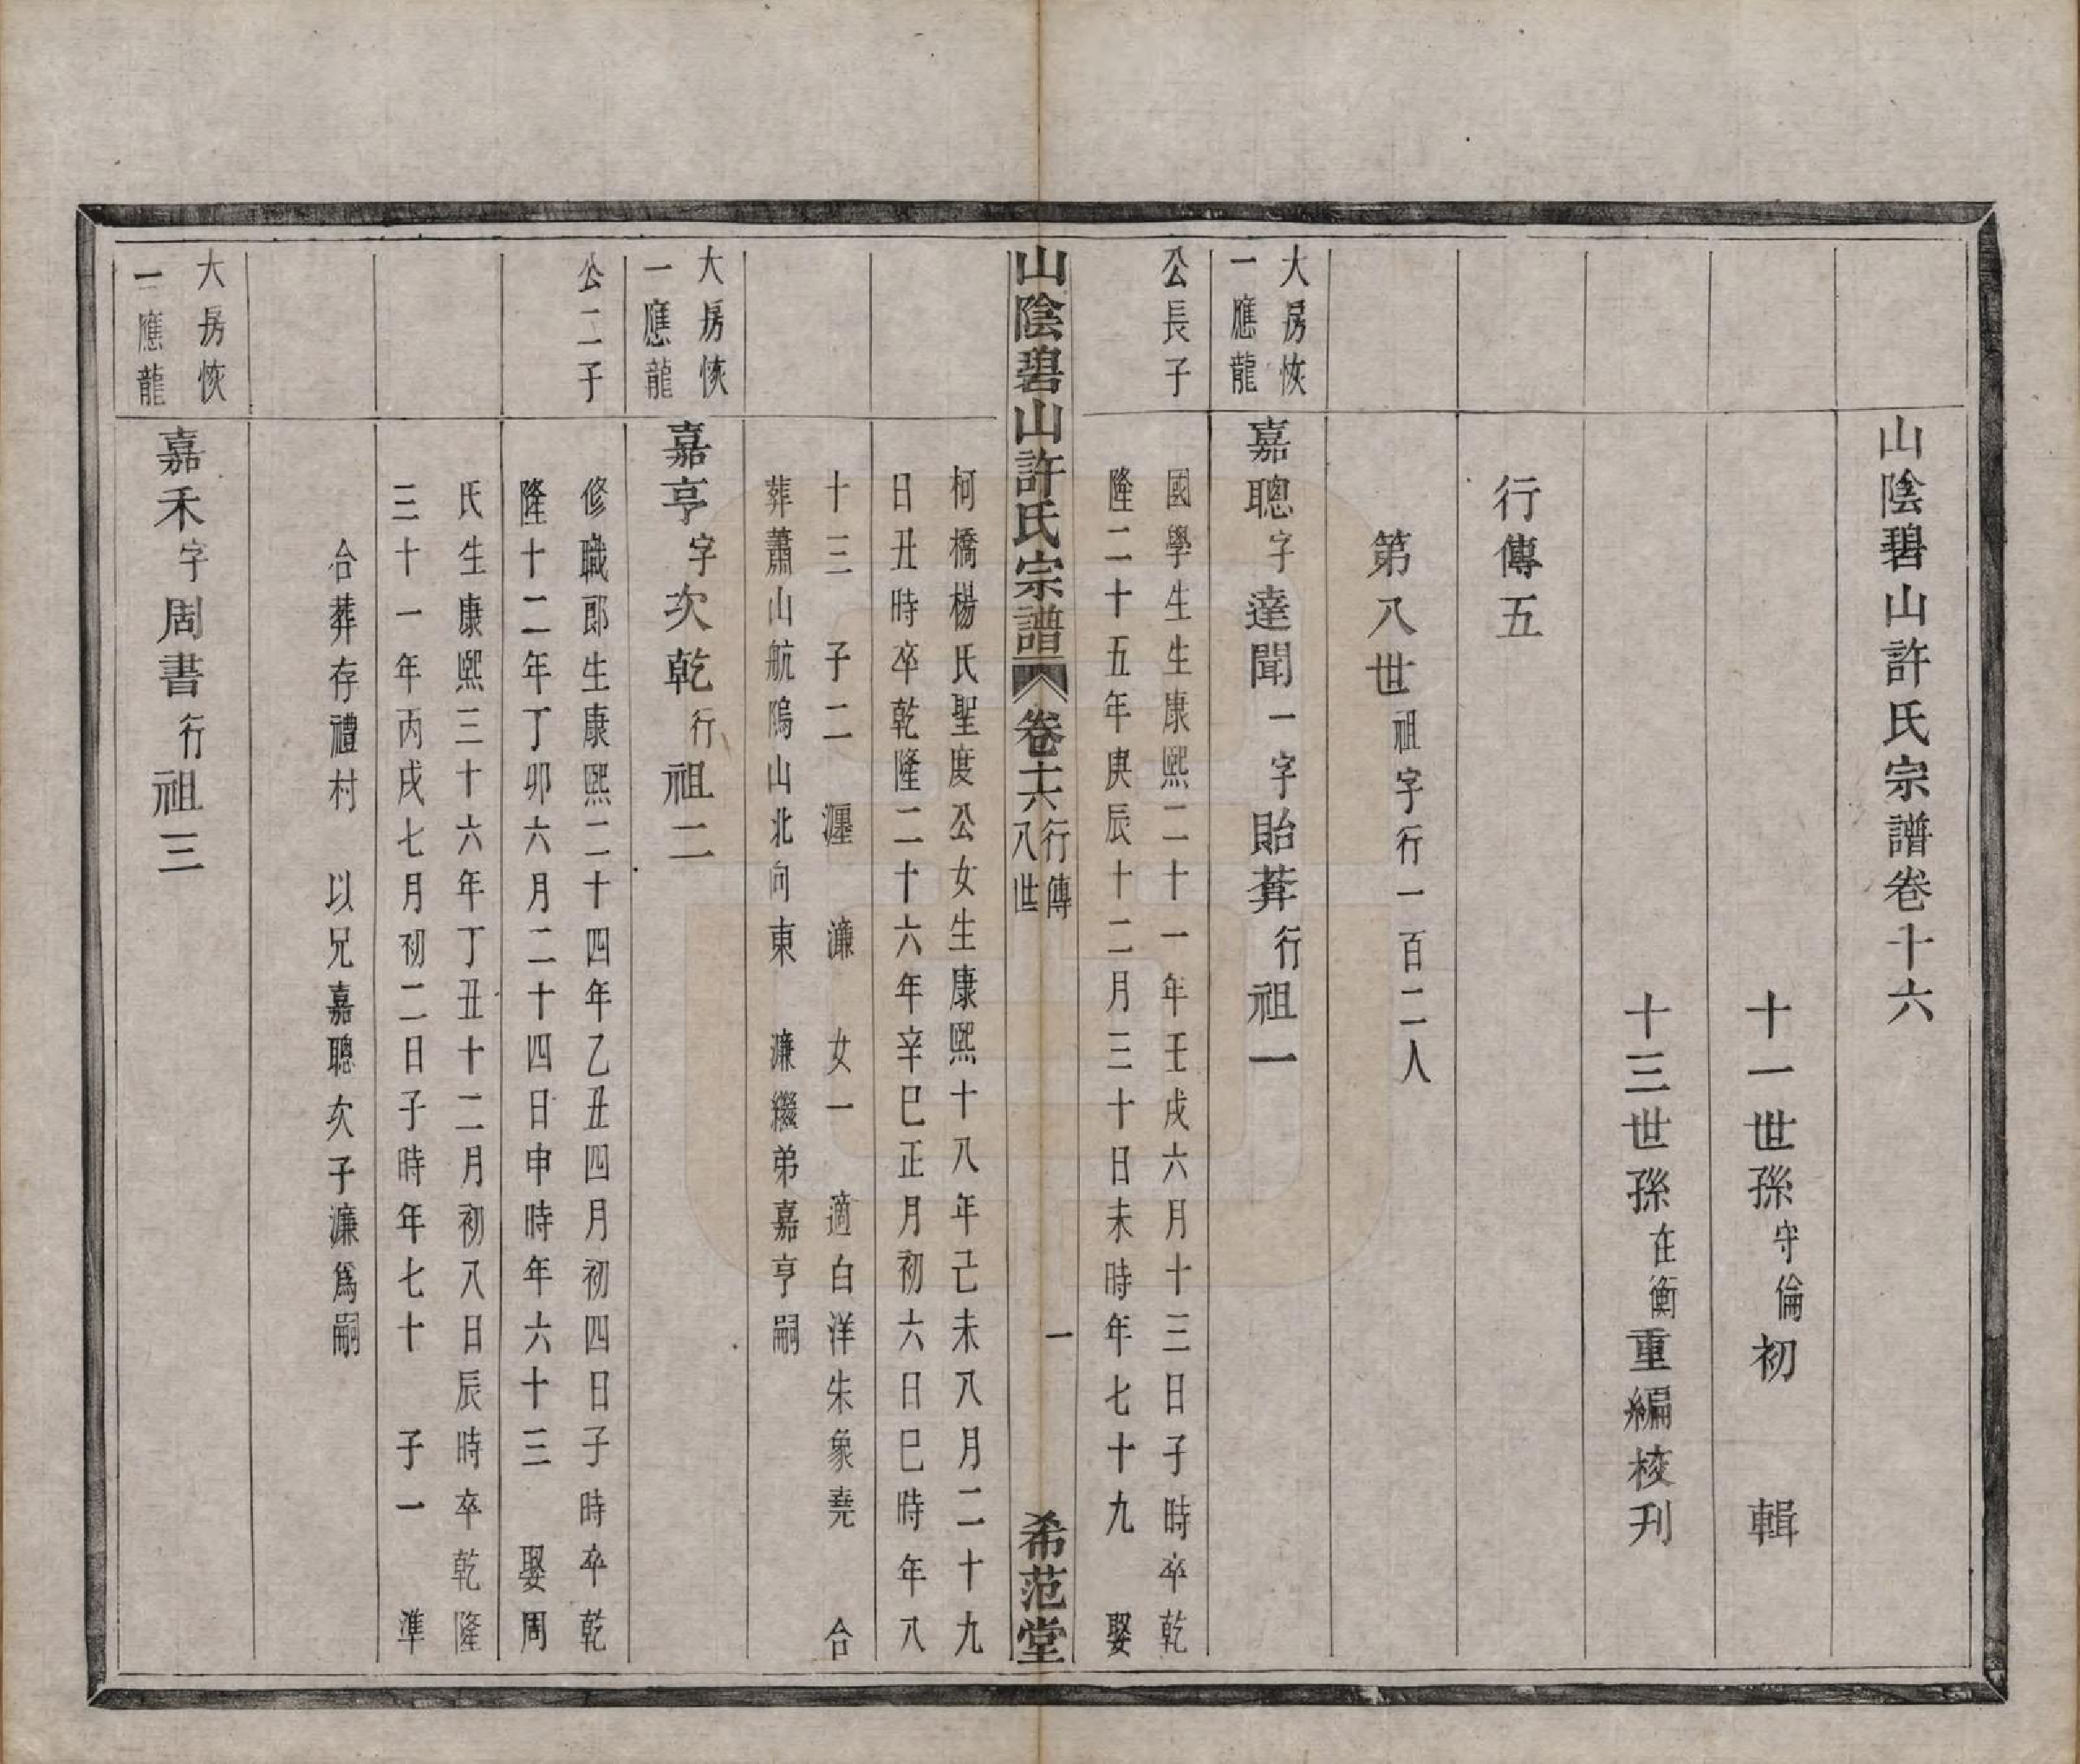 山陰碧山許氏宗譜卷十六
十一世孫守倫初 輯
十三世孫在衡重編校刋
行傳五
第八世祖字行一百二人
大房恢
一應龍
嘉聰字達聞一字貽葊行祖一
公長子
國學生生康熙二十一年壬戌六月十三日子時卒乾
隆二十五年庚辰十二月三十日未時年七十九 娶
山陰碧山許氏宗譜 卷十六 行傳 八世 一 希范堂
柯橋楊氏聖度公女生康熙十八年己未八月二十九
日丑時卒乾隆二十六年辛巳正月初六日巳時年八
十三 子二 濹 濂 女一 適白洋朱象堯 合
葬蕭山航塢山北向東 濂繼弟嘉亨嗣
大房恢
一應龍
嘉亨字次乾行祖二
公二子
修職郎生康熙二十四年乙丑四月初四日子時卒乾
隆十二年丁卯六月二十四日申時年六十三 娶周
氏生康熙三十六年丁丑十二月初八日辰時卒乾隆
三十一年丙戌七月初二日子時年七十 子一 準
合葬存禮村 以兄嘉聰次子濂爲嗣
大房恢
一應龍
嘉禾字周書行祖三